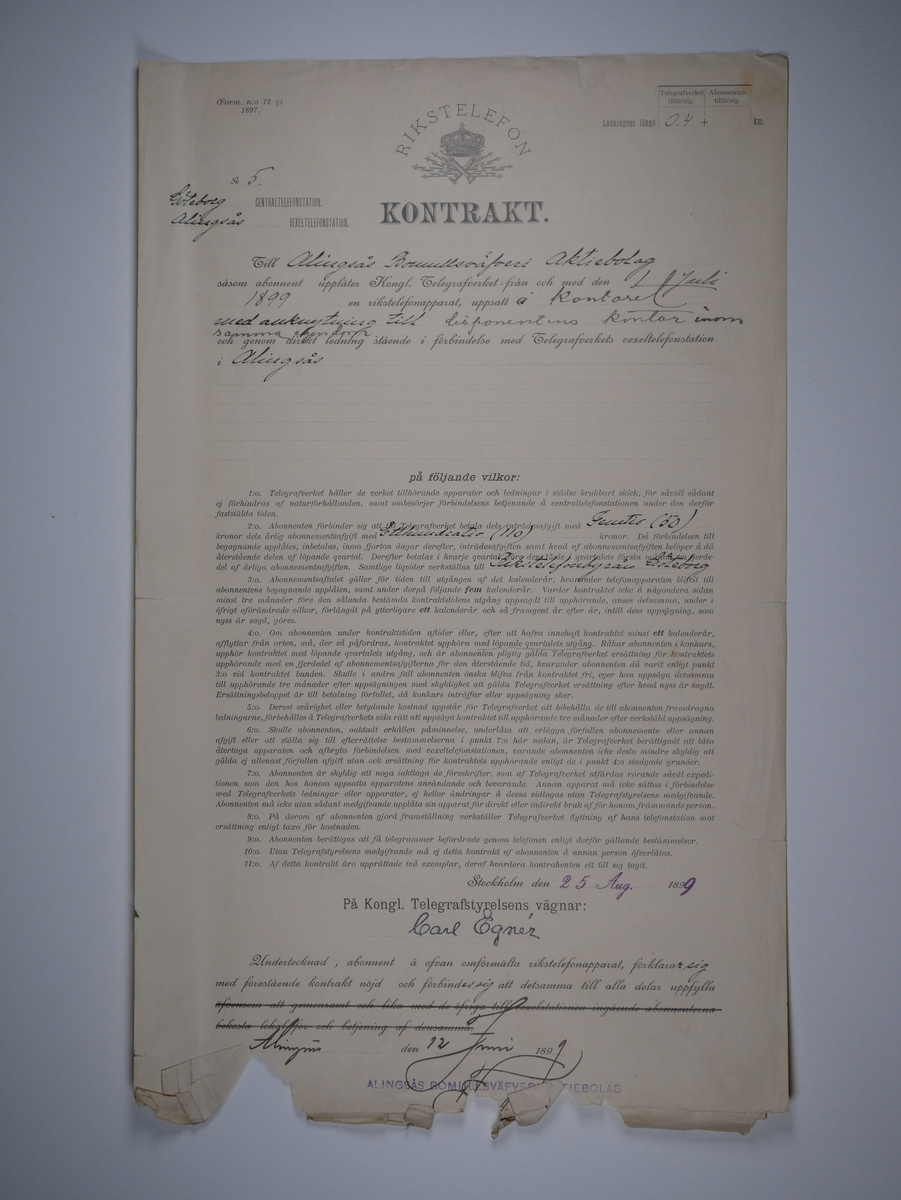 (Form. n:o 12 q)
1897.
Telegrafverket tillhörig.
Abonnenten tillhörig.
Ledningens längd 0.4 + km.
RIKSTELEFON
№ 5.
Göteborg CENTRALTELEFONSTATION.
Alingsås VEXELTELEFONSTATION.
KONTRAKT.
Till Alingsås Bomullsväfveri Aktiebolag
såsom abonnent upplåter Kongl. Telegrafverket från och med den 1 Juli
1899 en rikstelefonapparat, uppsatt å kontoret
med anknytning till disponentens kontor inom
samma
och genom direkt ledning stående i förbindelse med Telegrafverkets vexeltelefonstation
i Alingsås
på följande vilkor:
1:o. Telegrafverket håller de verket tillhörande apparater och ledningar i städse brukbart skick, för såvidt sådant
ej förhindras af naturförhållanden, samt ombesörjer förbindelsens betjenande å centraltelefonstationen under den derför
fastställda tiden.
2:o. Abonnenten förbinder sig att till Telegrafverket betala dels inträdesafgift med Femtio (50)
kronor dels årlig abonnementsafgift med Etthundratio (110) kronor. Då förbindelsen till
begagnande upplåtes, inbetalas, inom fjorton dagar derefter, inträdesafgiften samt hvad af abonnementsafgiften belöper å då
återstående delen af löpande quartal. Derefter betalas i hvarje quartal före den i quartalets första månad en fjerde-
del af årliga abonnementsafgiften. Samtlige liqvider verkställas till Rikstelefonbyrån Göteborg
3:o. Abonnementsaftalet gäller för tiden till utgången af det kalenderår, hvarunder telefonapparaten blifvit till
abonnentens begagnande upplåten, samt under derpå följande fem kalenderår. Varder kontraktet icke å någondera sidan
minst tre månader före den sålunda bestämda kontraktstidens utgång uppsagdt till upphörande, anses detsamma, under i
öfrigt oförändrade vilkor, förlängdt på ytterligare ett kalenderår och så framgent år efter år, intill dess uppsägning, som
nyss är sagd, göres.
4:o. Om abonnenten under kontraktstiden aflider eller, efter att hafva innehaft kontraktet minst ett kalenderår,
afflyttar från orten, må, der så påfordras, kontraktet upphöra med löpande qvartalets utgång. Råkar abonnenten i konkurs,
upphör kontraktet med löpande qvartalets utgång, och är abonnenten pligtig gälda Telegrafverket ersättning för kontraktets
upphörande med en fjerdedel af abonnementsafgifterna för den återstående tid, hvarunder abonnenten då varit enligt punkt
3:o vid kontraktet bunden. Skulle i andra fall abonnenten önska blifva från kontraktet fri, eger han uppsäga detsamma
till upphörande tre månader efter uppsägningen med skyldighet att gälda Telegrafverket ersättning efter hvad nyss är sagdt.
Ersättningsbeloppet är till betalning förfallet, då konkurs inträffar eller uppsägning sker.
5:o. Derest svårighet eller betydande kostnad uppstår för Telegrafverket att bibehålla de till abonnenten framdragna
ledningarne, förbehålles å Telegrafverkets sida rätt att uppsäga kontraktet till upphörande tre månader efter verkställd uppsägning.
6:o. Skulle abonnenten, oaktadt erhållen påminnelse, underlåta att erlägga förfallen abonnements- eller annan
afgift eller att ställa sig till efterrättelse bestämmelserna i punkt 7:o här nedan, är Telegrafverket berättigadt att låta
återtaga apparaten och afbryta förbindelsen med vexeltelefonstationen, varande abonnenten icke desto mindre skyldig att
gälda ej allenast förfallen afgift utan ock ersättning för kontraktets upphörande enligt de i punkt 4:o stadgade grunder.
7:o. Abonnenten är skyldig att noga iakttaga de föreskrifter, som af Telegrafverket utfärdas rörande såväl expedi-
tionen som den hos honom uppsatta apparatens användande och bevarande. Annan apparat må icke sättas i förbindelse
med Telegrafverkets ledningar eller apparater, ej heller ändringar å dessa vidtagas utan Telegrafstyrelsens medgifvande.
Abonnenten må icke utan sådant medgifvande upplåta sin apparat för direkt eller indirekt bruk af för honom främmande person.
8:o. På derom af abonnenten gjord framställning verkställer Telegrafverket flyttning af hans telefonstation mot
ersättning enligt taxa för kostnaden.
9:o. Abonnenten berättigas att få telegrammer befordrade genom telefonen enligt derför gällande bestämmelser.
10:o. Utan Telegrafstyrelsens medgifvande må ej detta kontrakt af abonnenten å annan person öfverlåtas.
11:o. Af detta kontrakt äro upprättade två exemplar, deraf hvardera kontrahenten ett till sig tagit.
Stockholm den 25 Aug. 1899
På Kongl. Telegrafstyrelsens vägnar:
Carl Egnér
Undertecknad, abonnent å ofvan omförmälta rikstelefonapparat, förklarar sig
med förestående kontrakt nöjd och förbinder sig att detsamma till alla delar uppfylla
äfvensom att gemensamt och lika med de öfriga till vexelstationen ingående abonnenterna
bekosta lokal för och betjening af densamma.
Alingsås den 12 Juni 1899
ALINGSÅS BOMULLSVÄFVERI AKTIEBOLAG